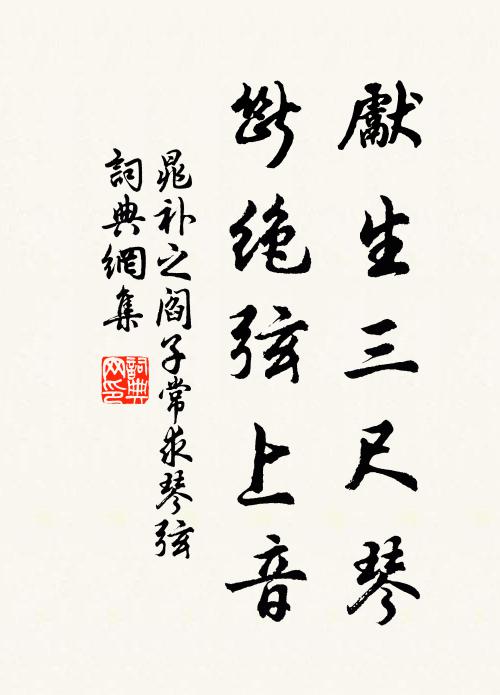 獻生三尺琴
斷絕弦上音
晁补之閻子常求琴弦
詞典網集
詞典网印